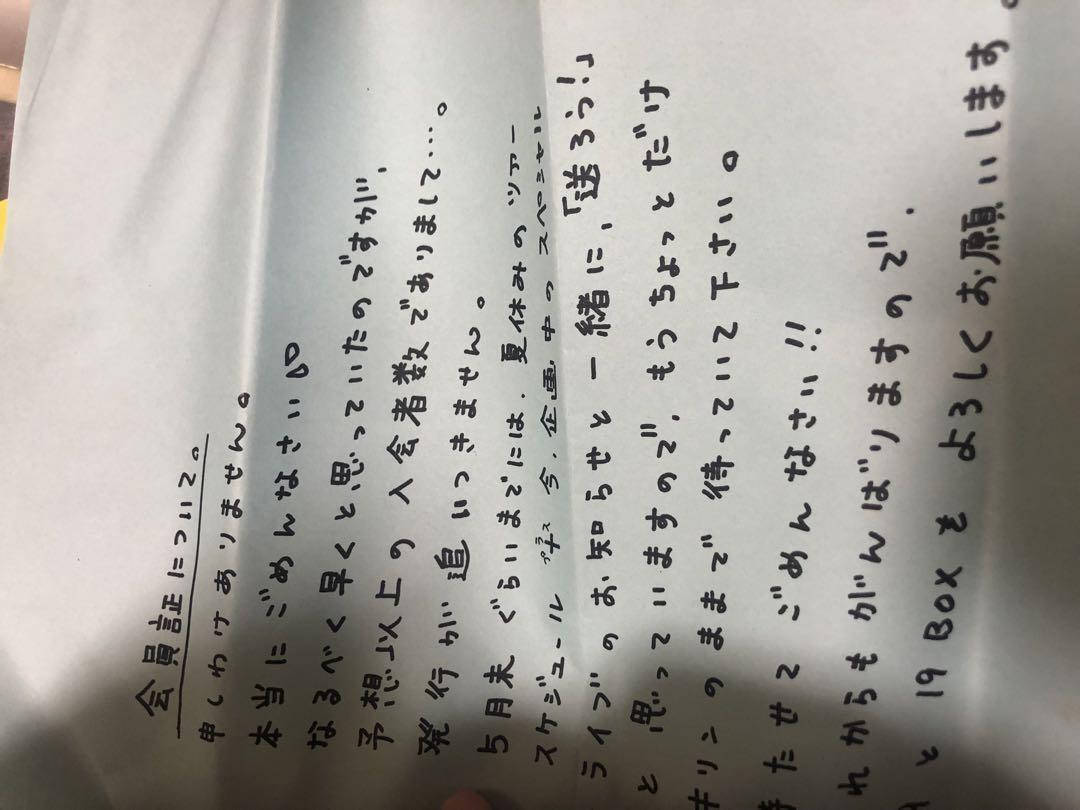 会員証について。
申しわけありません。
本当にごめんなさい
なるべく早くと思っていたのですが、
予想以上の入会者数でありまして…。
発行が追いつきません。
5月末ぐらいまでには、夏休みのツアー
スケジュール プラス 今、企画中のスペシャル
ライブのお知らせと一緒に、「送ろう!」
と思っていますので、もうちょっとだけ
キリンのままで待っていて下さい。
待たせてごめんなさい!!
れからもがんばりますので、
と19BOXをよろしくお願いします。